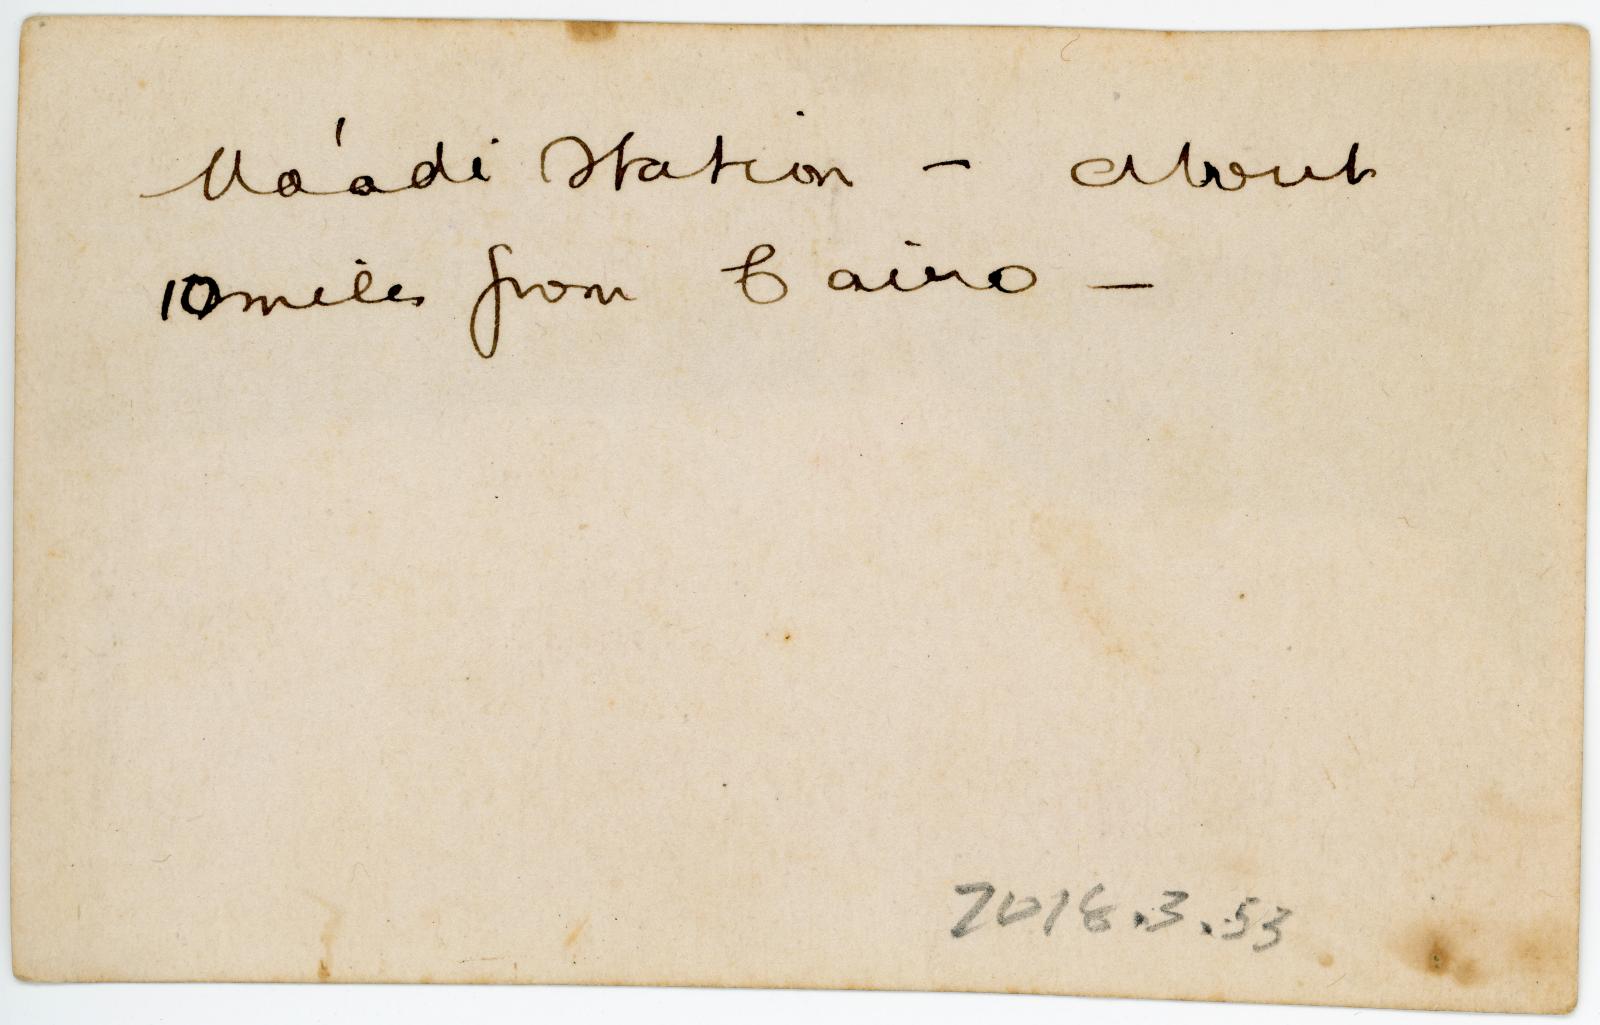 Ma'adi Station – About
10 miles from Cairo –
2018.3.53